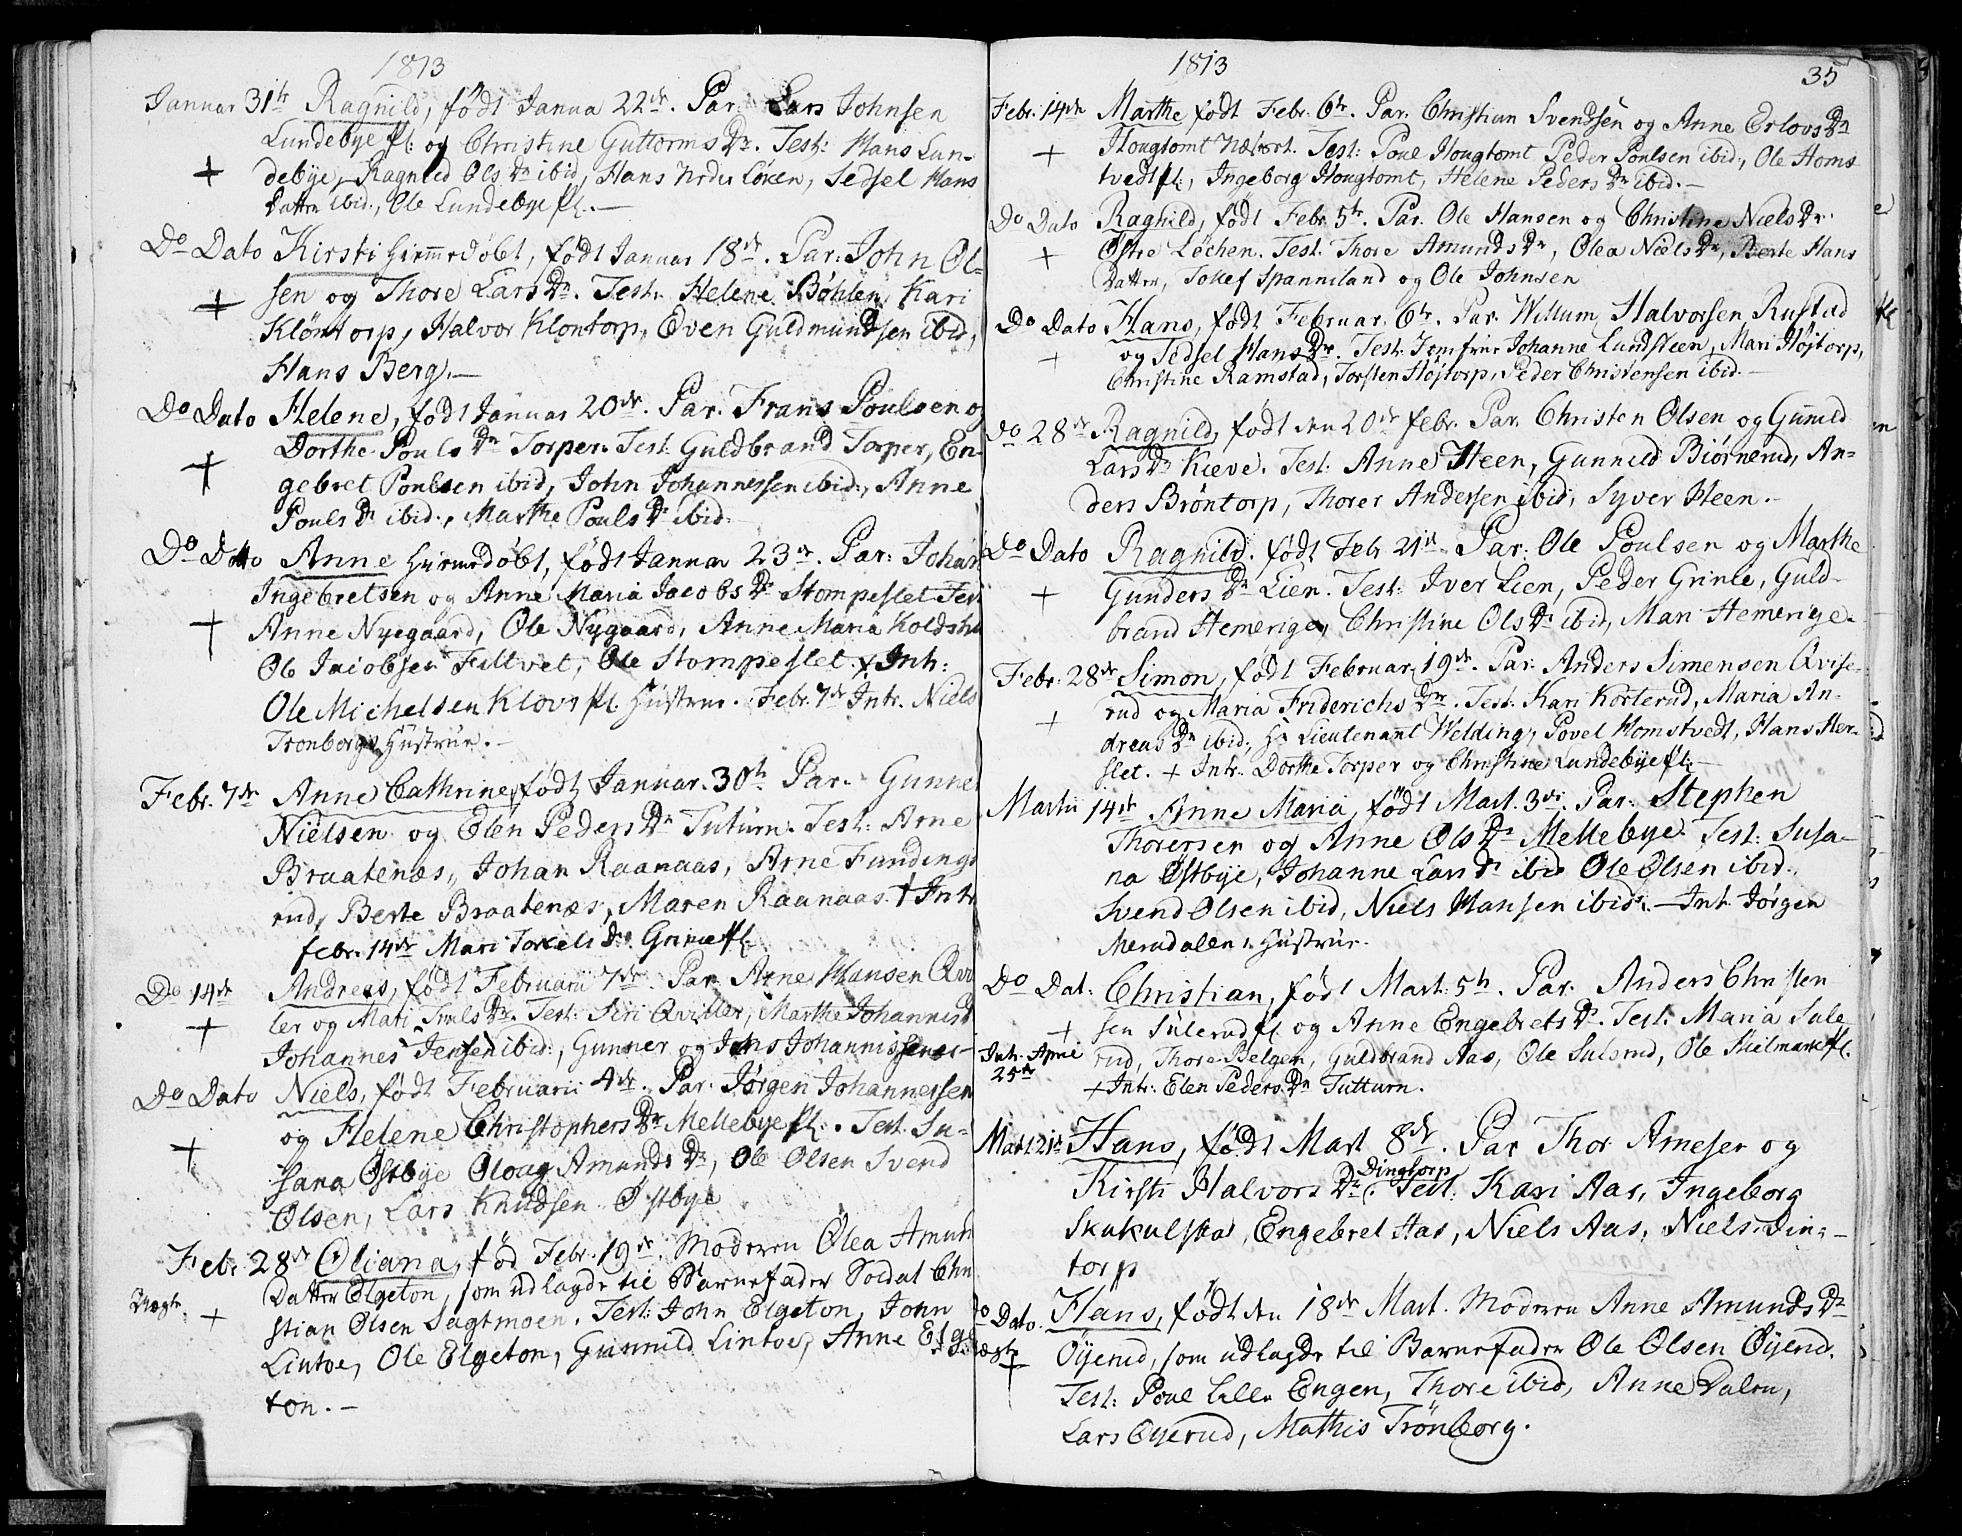 1813
Januar 31te Ragnild, født Janua 22de. Par: Lars Johnsen
Lundebye fl: og Christine Guttorms Dr. Test: Hans Lun-
+ debye, Ragnild Ols Dr ibid, Hans Løken, Sedsel Hans
Datter ibid., Ole Lundebye fl. —
Do Dato Kirsti hiemmedøbt, født Januar 18de. Par: John Ol-
+ sen og Thore Lars Dr. Test. Helene Bøhlen, Kari
Klöntorp, Halvor Klontorp, Even Guldmundsen ibid,
Hans Berg. —
Do Dato Helene, født Januar 20de. Par. Frans Poulsen og
+ Dorthe Pouls Dr Torper. Test: Guldbrand Torper, En-
gebret Poulsen ibid, John Johannessen ibid., Anne
Pouls Dr ibid., Marthe Pouls Dr ibid.
Do Dato Anne hiemedøbt, født Januar 23de. Par: Johan
Ingebretsen og Anne Maria Jacobs Dr Stompeslet Test
+ Anne Nyegaard, Ole Nygaard, Anne Maria
Ole Jacobsen Filtvet, Ole Stompeslet. + Intr:
Ole Michelsen Klovs fl. Hustrue. Febr. 7de Intr. Niels
Tronborgs Hustrue. —
Febr. 7de Anne Cathrine, født Januar. 30te Par. Gunne
Nielsen og Elen Peders Dr Tuturn. Test: Arne
Braatenæs, Johan Raanaas, Arne Fundings
rud, Berte Braatenæs, Maren Raanaas + Intr
febr. 14de Mari Torkels Dr Grime fl.
Do 14de Andreas, født Februarii 7de. Par. Arne Hansen Qvi
+ ler og Mari Pouls Dr. Test: Siri Qviller, Marthe Johannis D
Johannes Jensen ibid., Gunner og Jens Johannissen
Do Dato Niels, født Februarii 4de. Par. Jørgen Johannessen
+ og Helene Christophers Dr Mellebye fl. Test. Su-
sana Østbye Oloug Amunds Dr, Ole Olsen Svend
Olsen, Lars Knudsen Østbye
Febr 28de Oliana, fød Febr. 19de. Moderen Olea Amun
Uægte. + Datter Elgeton, som udlagde til Barnefader Soldat Chri
stian Olsen Sagtmoen. Test: John Elgeton, John
Lintoe, Ole Elgeton, Gunnild Lintoe, Anne Elge
ton. —
1813
35
Febr. 14de Marthe, født Febr. 6te. Par. Christian Svendsen og Anne Erlovs Dr
+ Hougtomt Test: Poul Hougtomt Peder Poulsen ibid., Ole Homs
tvedt fl., Ingeborg Hougtomt, Helene Peders Dr ibid. —
Do Dato Ragnild, født Febr. 5te. Par. Ole Hansen og Christine Niels Dr.
+ Østre Løchen. Test. Thore Amunds Dr, Olea Niels Dr, Berte Hans
Datter, Tollef Spanniland og Ole Johnsen
Do Dato Hans, født Februar. 6te. Par. Willum Halvorsen Rustad
+ og Sedsel Hans Dr. Test. Jomfrue Johanne Lundsteen, Mari Höjtorp,
Christine Ramstad, Torsten Höjtorp, Peder Christensen ibid. —
Do 28de Ragnild, født den 20de febr. Par. Christen Olsen og Gunild
Lars Dr Kieve. Test: Anne Steen, Gunnild Biørnerud, An-
ders Bröntorp, Thorer Andersen ibid, Syver Steen. —
Do Dato Ragnild. født Febr 21de Par: Ole Poulsen og Marthe
+ Gunders Dr Lien. Test: Iver Lien, Peder Grinle, Guld-
brand Hemerige, Christine Ols Dr ibid, Mari Hemerige. —
Febr. 28de Simon, født Februar. 19de. Par. Anders Simensen Qvise-
+ rud og Maria Friderichs Dr. Test. Kari Korterud, Maria An-
dreas Dr ibid., Hr Lieutenant Welding, Povel Homstvedt, Hans Her-
slet. + Intr. Dorthe Torper og Christine Lundebye fl. —
Martii 14de Anne Maria, født Mart. 3de. Par: Stephen
Thorersen og Anne Ols Dr Mellebye. Test: Susa-
na Østbye, Johanne Lars Dr ibid Ole Olsen ibid.
Svend Olsen ibid, Niels Hansen ibid. — Intr. Jørgen
Merudalens Hustrue.
Do Dat. Christian, født Mart: 5te. Par. Anders Christen
+ sen Sulerud fl. og Anne Engebrets Dr. Test: Maria Sule
Intr. April 25de rud, Thore Belgen, Guldbrand Aas, Ole Sulerud, Ole Skielmark fl.
+ Intr: Elen Peders Dr Tutturn.
Mart. 21de Hans, født Mart 8de. Par Thor Arnesen og
Kirsti Halvors Dr Dingtorp. Test. Kari Aas, Ingeborg
Skukulstad, Engebret Aas, Niels Aas, Niels Din-
torp
Do Dato. Hans, født den 18de Mart. Moderen Anne Amunds Dr
Uægte + Öyerud, som udlagde til Barnefader Ole Olsen Öyerud.
Test: Poul Lille Engen, Thore ibid, Anne Dalen,
Lars Øyerud, Mathis Trönborg.